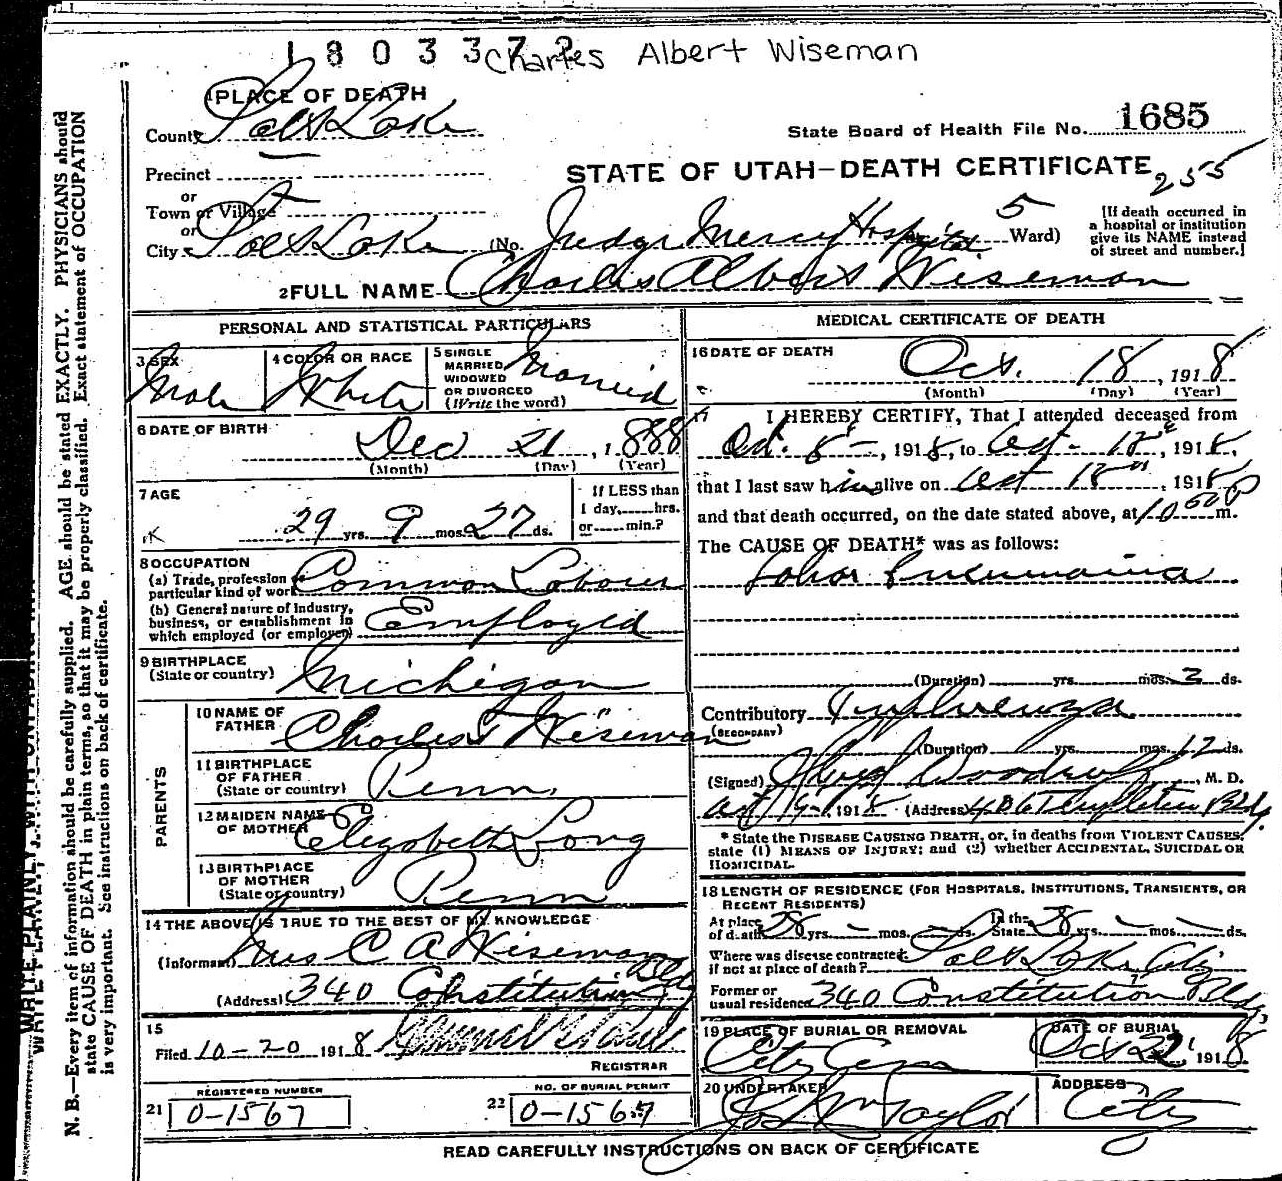 1803372 Charles Albert Wiseman
1 PLACE OF DEATH
County Salt Lake
State Board of Health File No. 1685
Precinct
STATE OF UTAH—DEATH CERTIFICATE 255
or
Town or Village
or
City Salt Lake (No. Judge Mercy Hospital 5 Ward)
[If death occurred in
a hospital or institution
give its NAME instead
of street and number.]
2 FULL NAME Charles Albert Wiseman
PERSONAL AND STATISTICAL PARTICULARS
3 SEX
Male
4 COLOR OR RACE
White
5 SINGLE
MARRIED,
WIDOWED
OR DIVORCED
(Write the word)
Married
6 DATE OF BIRTH
Dec 21, 1888
(Month) (Day) (Year)
7 AGE
29 yrs. 9 mos. 27 ds.
If LESS than
1 day, hrs.
or min.?
8 OCCUPATION
(a) Trade, profession or
particular kind of work Common Laborer
(b) General nature of industry,
business, or establishment in
which employed (or employer) Employed
9 BIRTHPLACE
(State or country) Michigan
PARENTS
10 NAME OF
FATHER Charles T Wiseman
11 BIRTHPLACE
OF FATHER
(State or country) Penn.
12 MAIDEN NAME
OF MOTHER Elizabeth Long
13 BIRTHPLACE
OF MOTHER
(State or country) Penn
14 THE ABOVE IS TRUE TO THE BEST OF MY KNOWLEDGE
(Informant) Mrs C A Wiseman
(Address) 340 Constitution Bldg
15
Filed 10-20 1918
REGISTRAR
REGISTERED NUMBER
21 0-1567
NO. OF BURIAL PERMIT
22 0-1567
MEDICAL CERTIFICATE OF DEATH
16 DATE OF DEATH
Oct. 18, 1918
(Month) (Day) (Year)
17 I HEREBY CERTIFY, That I attended deceased from
Oct. 8, 1918, to Oct - 18, 1918,
that I last saw him alive on Oct 18, 1918
and that death occurred, on the date stated above, at 10 P m.
The CAUSE OF DEATH* was as follows:
Lobar Pneumonia
(Duration) yrs. mos. 2 ds.
Contributory Influenza
(SECONDARY)
(Duration) yrs. mos. 12 ds.
(Signed) Woodruff, M. D.
Oct 19, 1918 (Address) 406 Templeton Bldg.
* State the DISEASE CAUSING DEATH, or, in deaths from VIOLENT CAUSES,
state (1) MEANS OF INJURY; and (2) whether ACCIDENTAL, SUICIDAL OR
HOMICIDAL.
18 LENGTH OF RESIDENCE (FOR HOSPITALS, INSTITUTIONS, TRANSIENTS, OR
RECENT RESIDENTS)
At place of death 28 yrs. - mos. - ds. In the State 28 yrs. - mos. - ds.
Where was disease contracted
if not at place of death? Salt Lake City
Former or
usual residence 340 Constitution Bldg,
19 PLACE OF BURIAL OR REMOVAL
City Cem
DATE OF BURIAL
Oct 22, 1918
20 UNDERTAKER
Jos Wm Taylor
ADDRESS
City
READ CAREFULLY INSTRUCTIONS ON BACK OF CERTIFICATE
N. B.—Every item of information should be carefully supplied. AGE should be stated EXACTLY. PHYSICIANS should
state CAUSE OF DEATH in plain terms, so that it may be properly classified. Exact statement of OCCUPATION
is very important. See instructions on back of certificate.